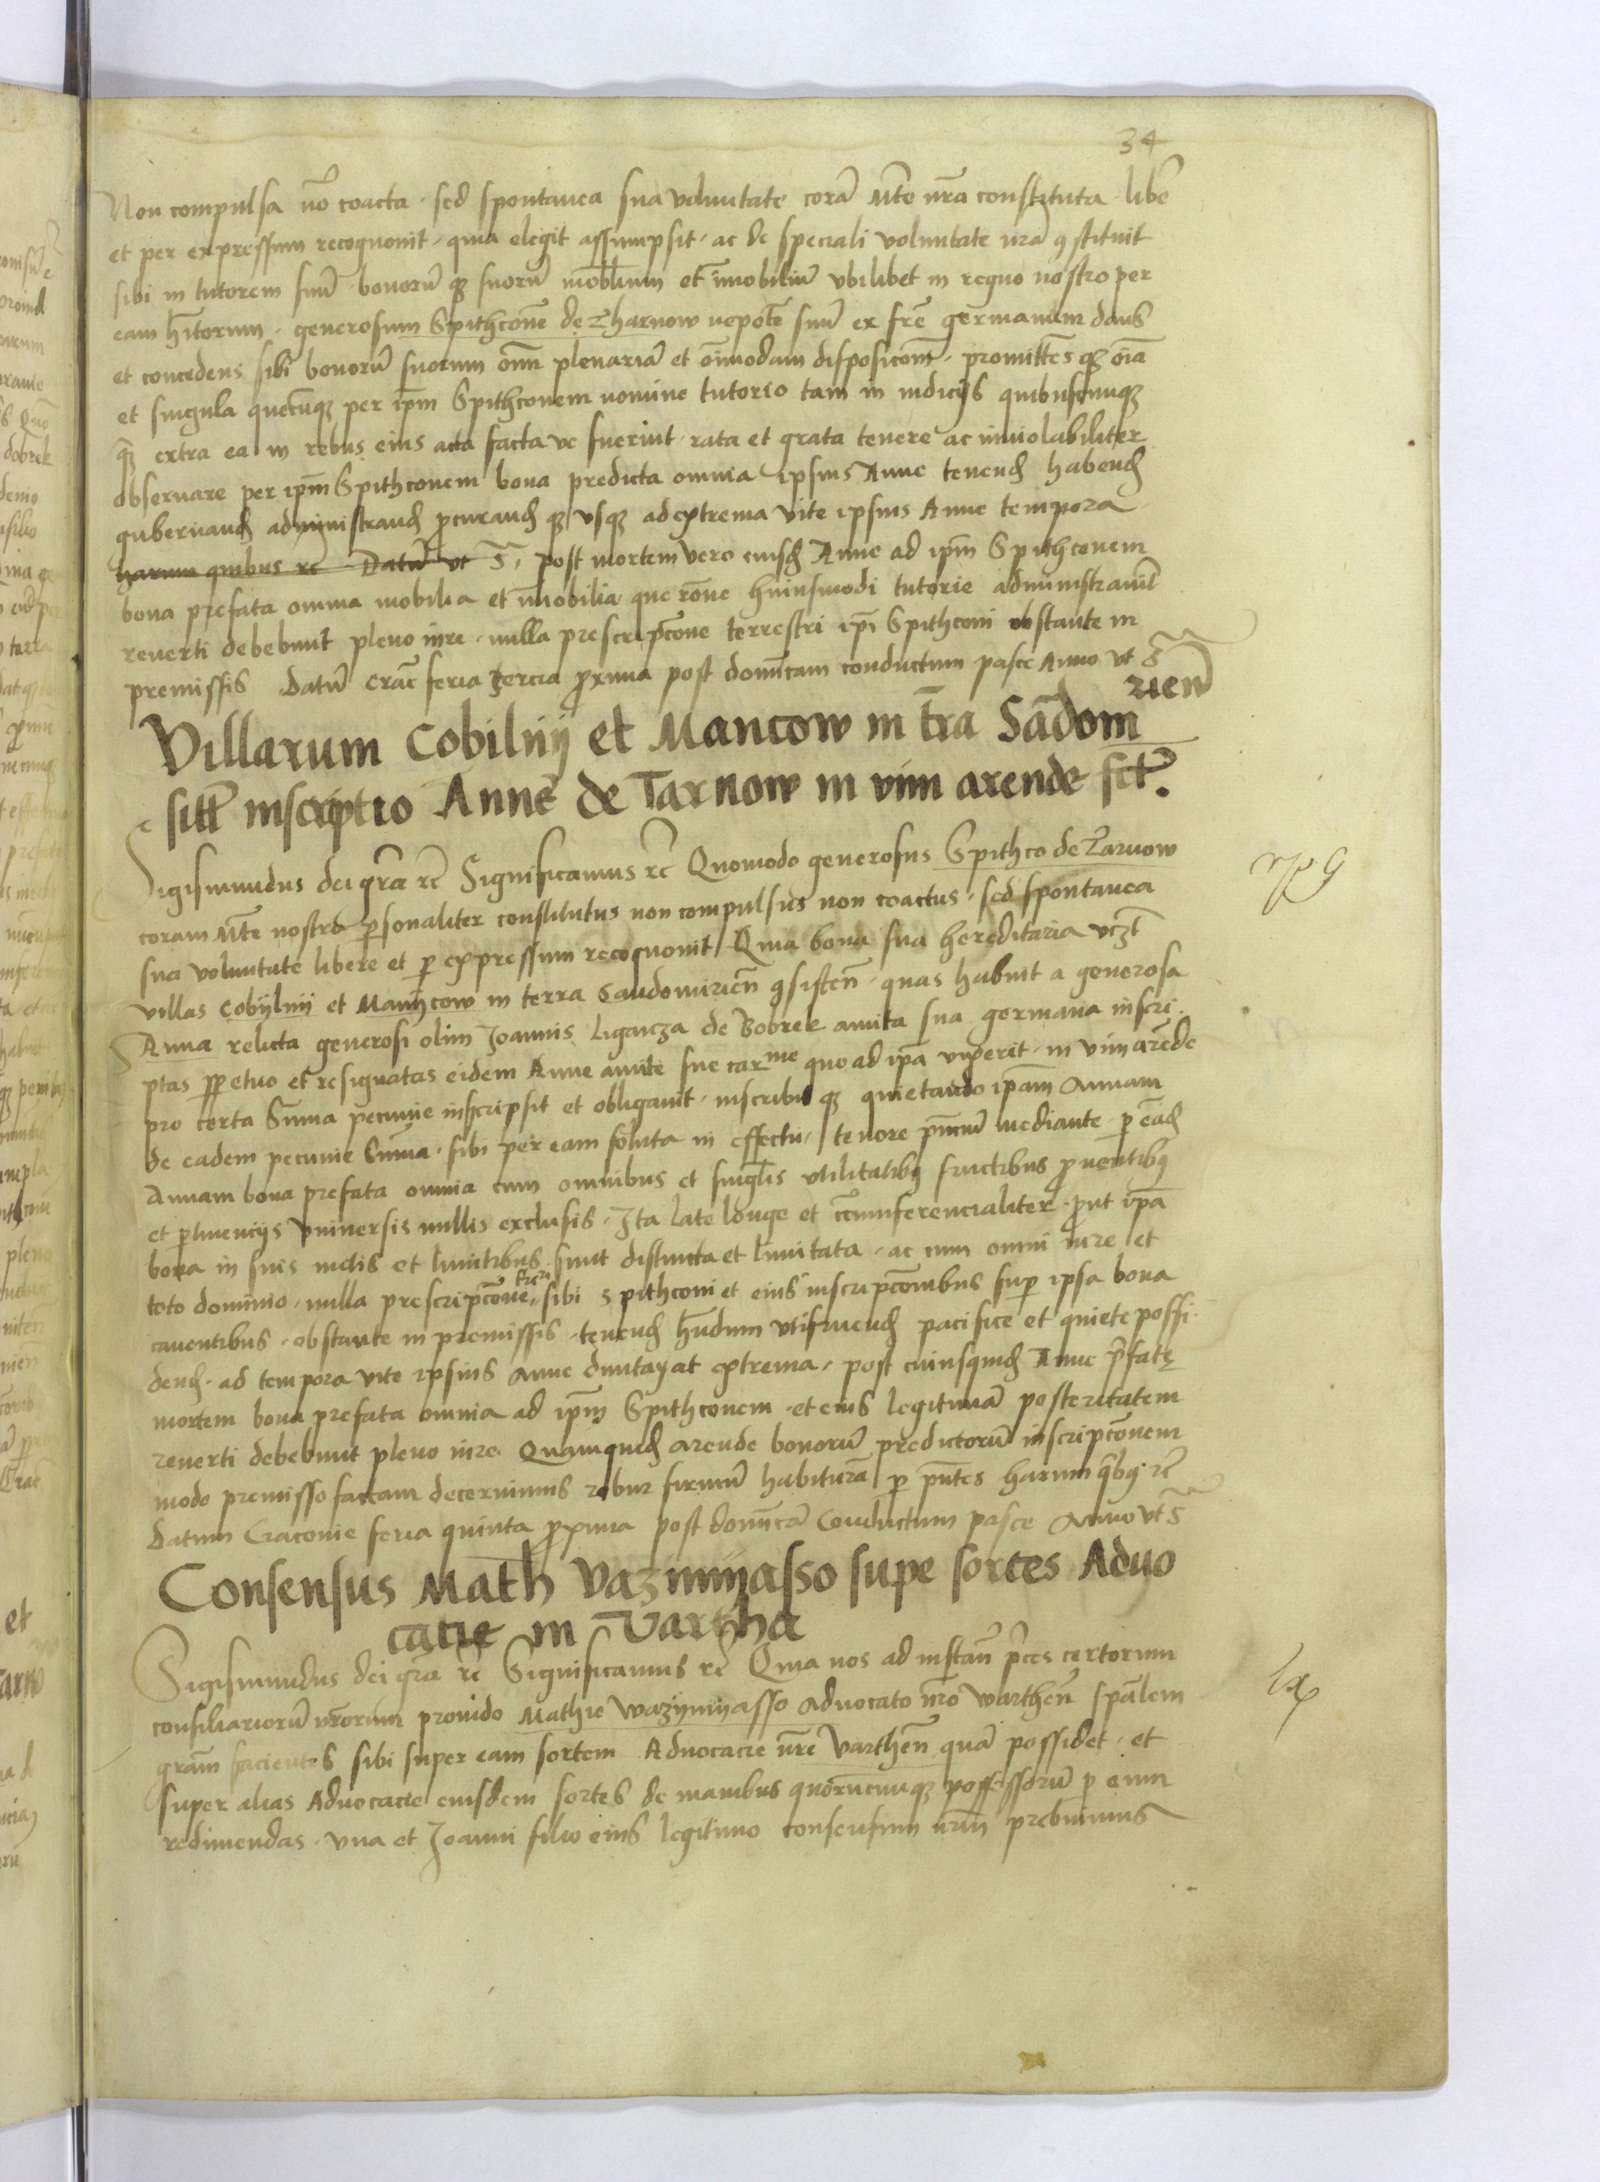 34
Non compulsa nō coacta · sed spontanea sua voluntate corā Mte nrā constituta · libe
et per expressum recognovit · quia elegit assumpsit · ac de speciali voluntate nrā ꝯstituit
sibi in tutorem suū · bonorū qꝫ suorū mobilium et imobiliū ubilibet in regno nostro per
eam hītorum · generosum Spithconē de Tharnow nepotē suū ex frē germanum dans
et concedens sibi bonorū suorum oīm plenariā et oīmodam disposicoēm · promittēs qꝫ oīa
et singula quecūqꝫ per ipm̄ Spithconem nomine tutorio tam in iudicijs quibuscunqꝫ
qꝫ extra ea in rebus eius acta facta ve fuerint · rata et grata tenere ac inviolabiliter
observare per ipm̄ Spithconem bona predicta omnia ipsius Anne tenend habend
gubernand administrand procurand qꝫ usqꝫ ad extrema vite ipsius Anne tempora
harum quibus rc Datū ut S post mortem vero eiusd Anne ad ipm̄ Spithconem
bona prefata omnia mobilia et īmobilia que rōne huiusmodi tutorie administravit
reverti debebunt pleno iure · nulla prescripcōne terrestri ipī Spithconi obstante in
premissis Datū Crac̄ feria tercia proxima post domīcam conductum pasce Anno ut S
rien̄
Villarum Cobilnij et Mancow in t̄ra Sādom
sitt inscriptio Anne de Tarnow in vim arende sit.
Sigismundus dei grā rc Significamus rc Quomodo generosus Spithco de Tarnow
coram Mte nostra personaliter constitutus non compulsus non coactus · sed spontanea
sua voluntate libere et per expressum recognovit Quia bona sua hereditaria vczt
villas Cobijlnij et Manijcow in terra Sandomirien̄ ꝯsisten̄ · quas habuit a generosa
Anna relicta generosi olim Joannis Ligancza de Bobrek amita sua germana inscri·
ptas perpetuo et resignatas eidem Anne amite sue carme quo ad ipā vixerit · in vim arēde
pro certa Summa pecunie inscripsit et obligavit · inscribit qꝫ quietando ipām Annam
de eadem pecunie Summa · sibi per eam soluta in effectu · tenore pn̄cium mediante · per eād
Annam bona prefata omnia cum omnibus et singlis utilitatibꝫ fructibus proventibꝫ
et ptinencijs universis nullis exclusis · Ita late longe et circumferencialiter · prout ipā
bona in suis metis et limitibus sunt distincta et limitata · ac cum omni iure et
toto dominio · nulla prescripcōne sibi Spithconi et eius inscripcōnibus super ipsa bona
caventibus · obstante in premissis · tenend hn̄dum utifruend pacifice et quiete possi·
dend · ad tempora vite ipsius Anne duntaxat extrema · post cuiusquid Anne prefatę
mortem bona prefata omnia ad ipm̄ Spithconem · et eius legitimā posteritatem
reverti debebunt pleno iure Quamquid arende bonorū predictorū inscripcōnem
modo premisso factam decernimus robur firmum habiturā per pn̄tes harum qibꝫ rc
datum Cracovie feria quinta proxima post domīcā Conductum pasce Anno ut S
Consensus Math Vazmijasso supe sortes Advo
cacie in Vartha
Sigismundus dei grā rc Significamus rc Quia nos ad instan̄ preces certorum
consiliariorū nr̄orum provido Mathie Wazijmijasso advocato nr̄o Warthen̄ spālem
grām facientes sibi super eam sortem Advocacie nr̄e Varthen̄ quā possidet · et
super alias Advocacie eiusdem sortes de manibus quorūcunqꝫ possessorū per eum
redimendas · una et Joanni filio eius legitimo consensum nr̄m prebuimus